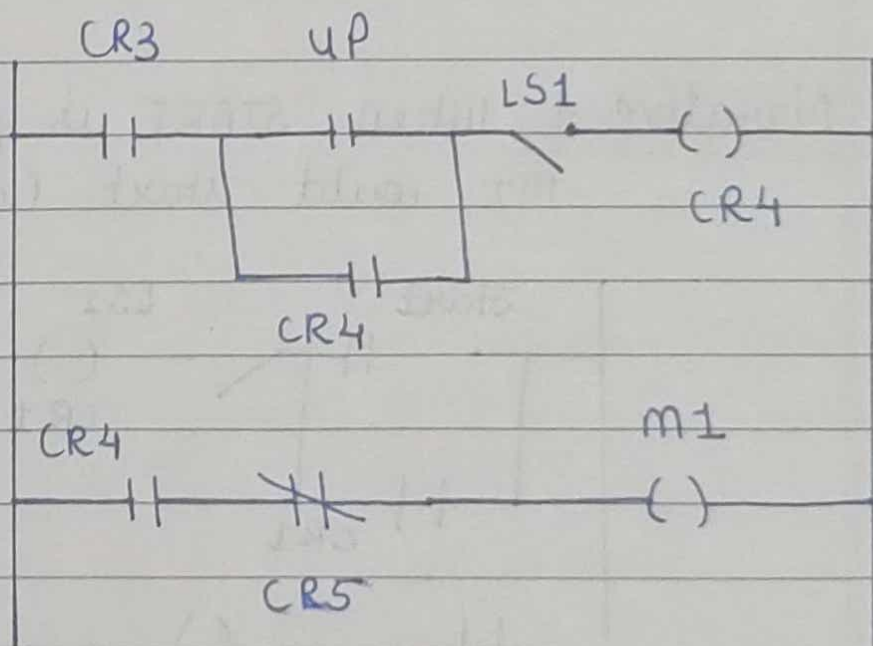 CR3 UP
LS1
CR4
CR4
CR4 M1
CR5